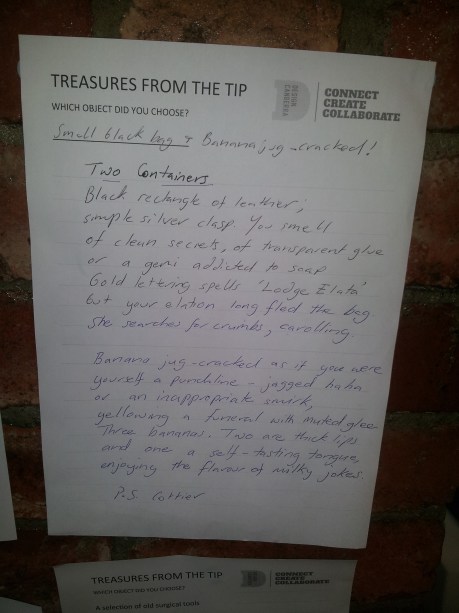 TREASURES FROM THE TIP
WHICH OBJECT DID YOU CHOOSE?
DESIGN
CANBERRA
CONNECT
CREATE
COLLABORATE
Small black bag + Banana jug - cracked!
Two Containers
Black rectangle of leather,
simple silver clasp. You smell
of clean secrets, of transparent glue
or a gem addicted to soap
Gold lettering spells 'Lodge Elata'
but your elation long fled the bag
She searches for crumbs, carolling.
Banana jug - cracked as if you were
yourself a punchline - jagged haha
or an inappropriate smirk,
yellowing a funeral with muted glee.
Three bananas. Two are thick lips
and one a self-tasting tongue,
enjoying the flavour of milky jokes.
P.S. Cottier
TREASURES FROM THE TIP
WHICH OBJECT DID YOU CHOOSE?
CONNECT
CREATE
COLLABORATE
A selection of old surgical tools